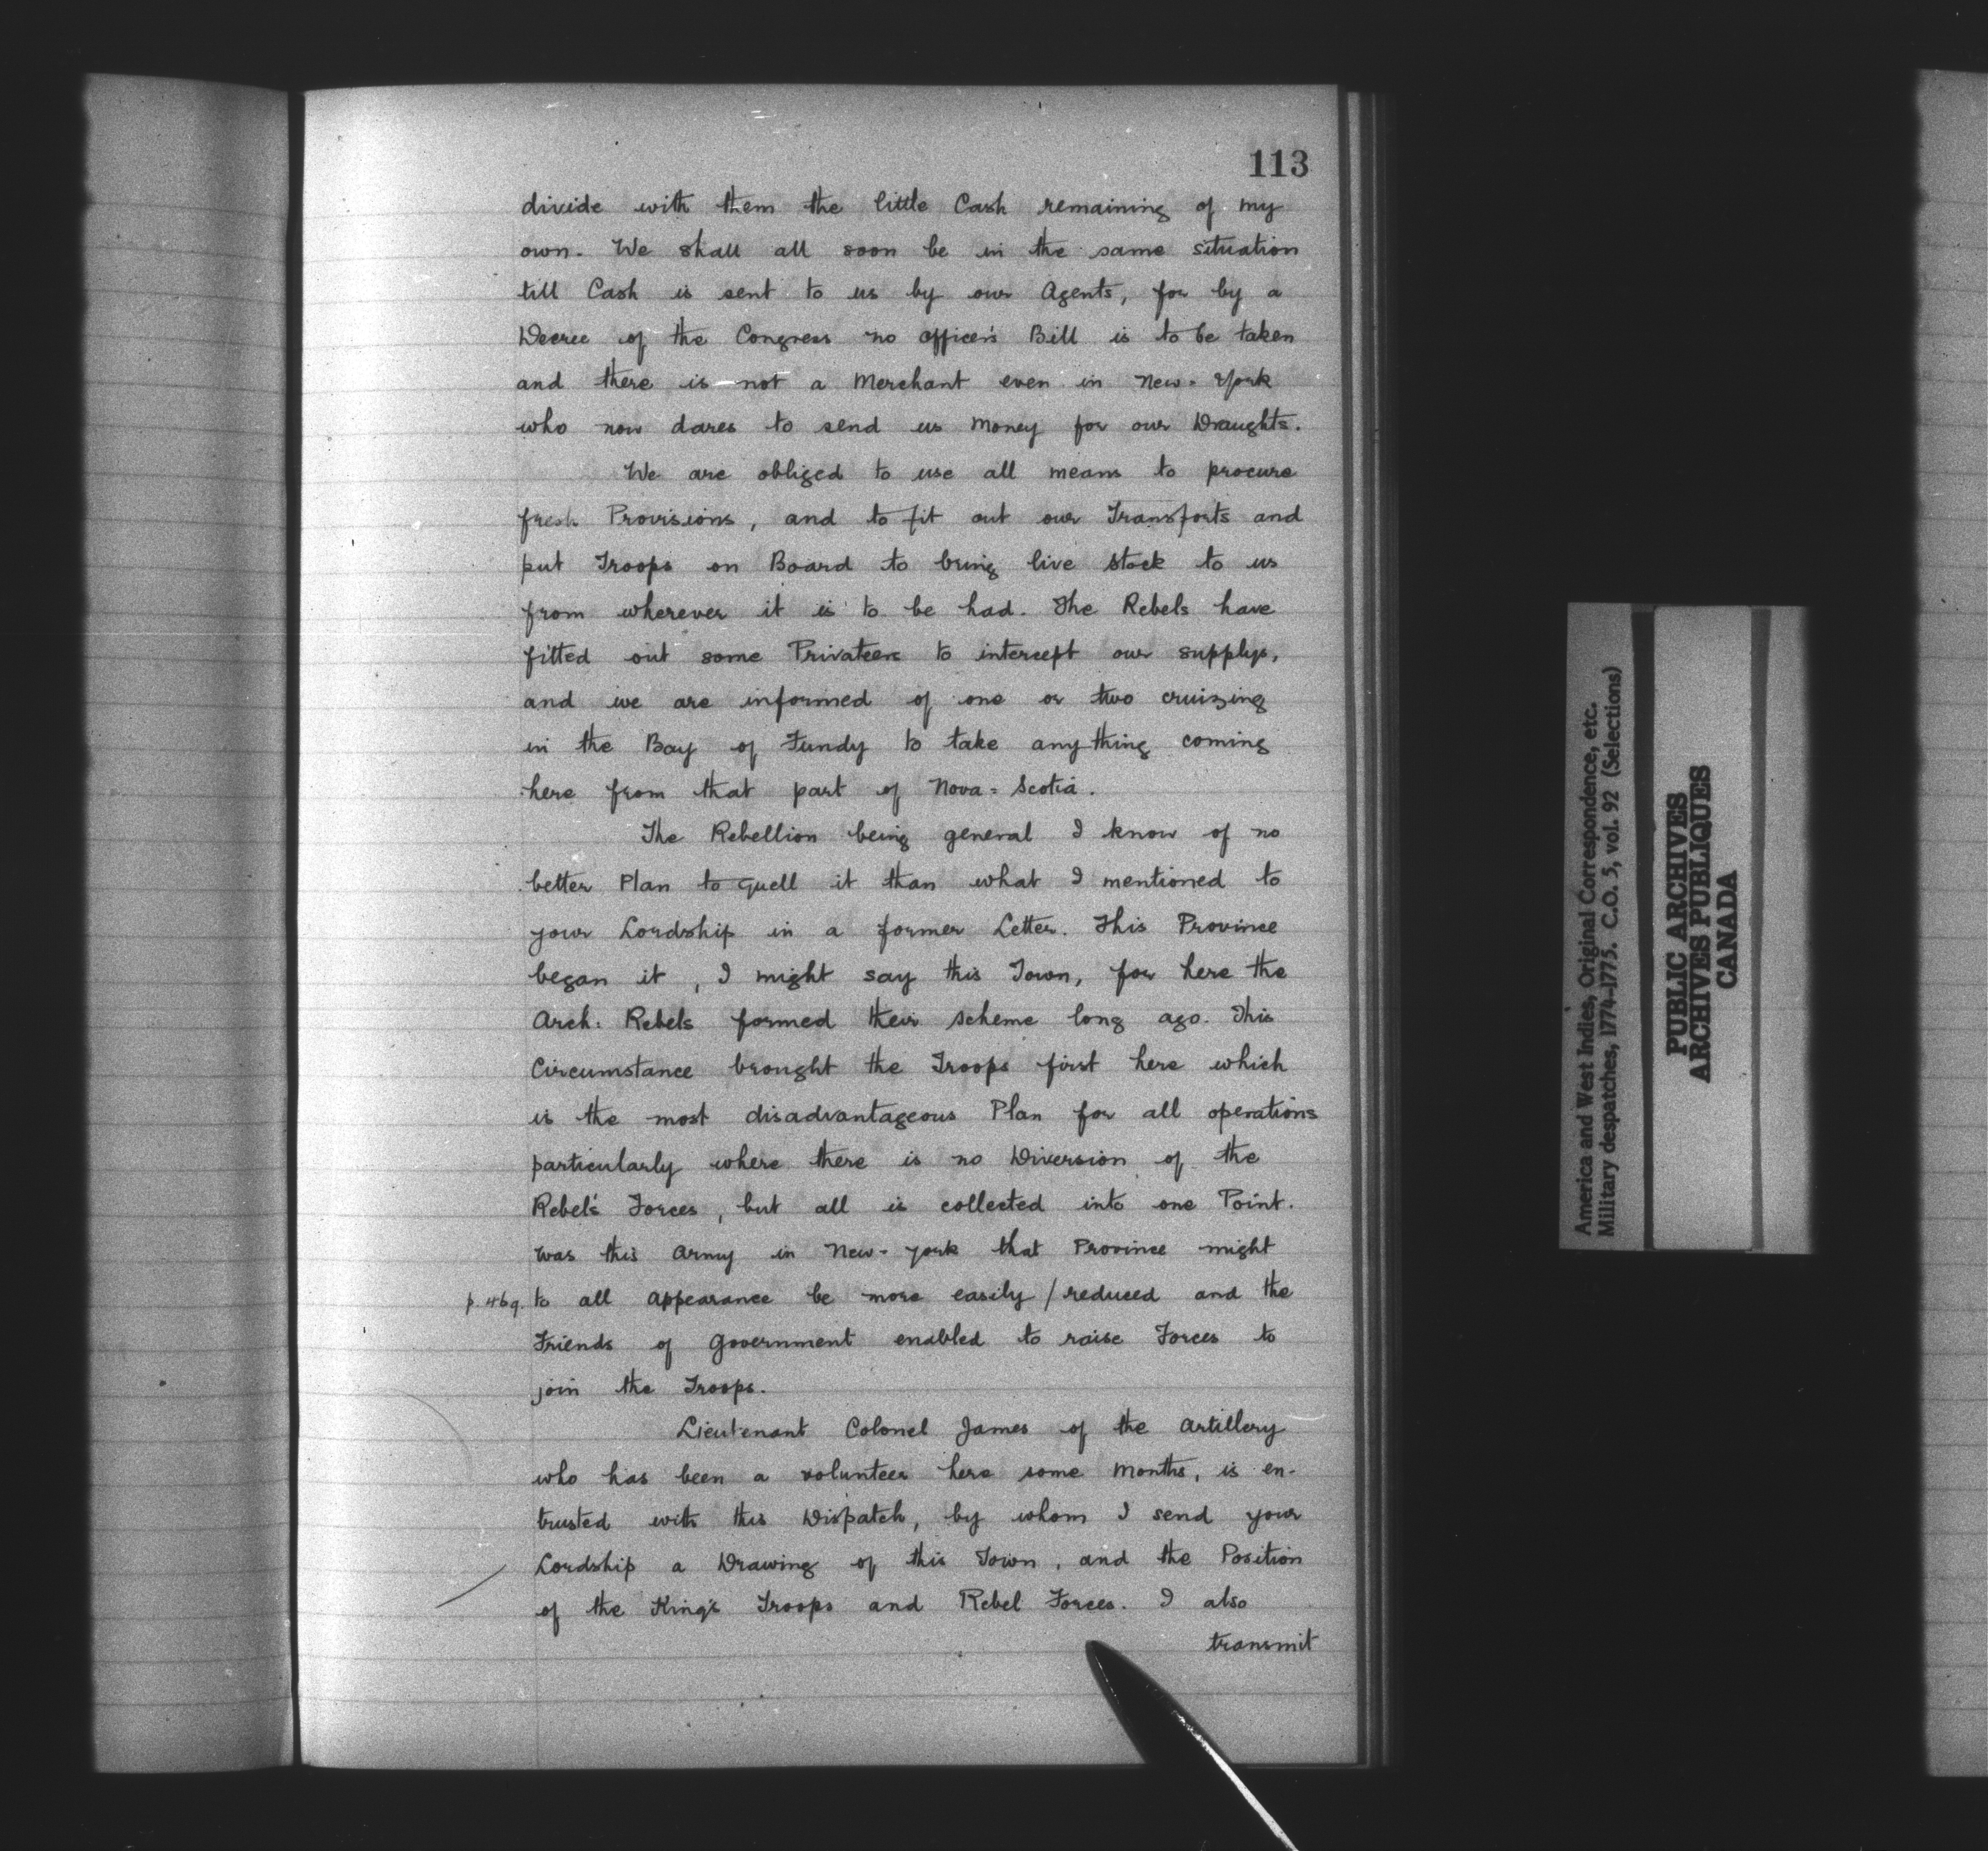 113
divide with them the little Cash remaining of my
own. We shall all soon be in the same situation
till Cash is sent to us by our Agents, for by a
Decree of the Congress no officer's Bill is to be taken
and there is not a Merchant even in New-York
who now dares to send us Money for our Draughts.
We are obliged to use all means to procure
fresh Provisions, and to fit out our Transports and
put Troops on Board to bring live stock to us
from wherever it is to be had. The Rebels have
fitted out some Privateers to intercept our supplys,
and we are informed of one or two cruizing
in the Bay of Fundy to take anything coming
here from that part of Nova-Scotia.
The Rebellion being general I know of no
better Plan to quell it than what I mentioned to
your Lordship in a former Letter. This Province
began it, I might say this Town, for here the
Arch: Rebels formed their scheme long ago. This
Circumstance brought the Troops first here which
is the most disadvantageous Plan for all operations
particularly where there is no Diversion of the
Rebel's Forces, but all is collected into one Point.
Was this Army in New-York that Province might
p. 469. to all appearance be more easily / reduced and the
Friends of Government enabled to raise Forces to
join the Troops.
Lieutenant Colonel James of the Artillery
who has been a volunteer here some months, is en-
trusted with this Dispatch, by whom I send your
Lordship a Drawing of this Town, and the Position
of the King's Troops and Rebel Forces. I also
transmit
America and West Indies, Original Correspondence, etc.
Military despatches, 1774-1775. C.O. 5, vol. 92 (Selections)
PUBLIC ARCHIVES
ARCHIVES PUBLIQUES
CANADA